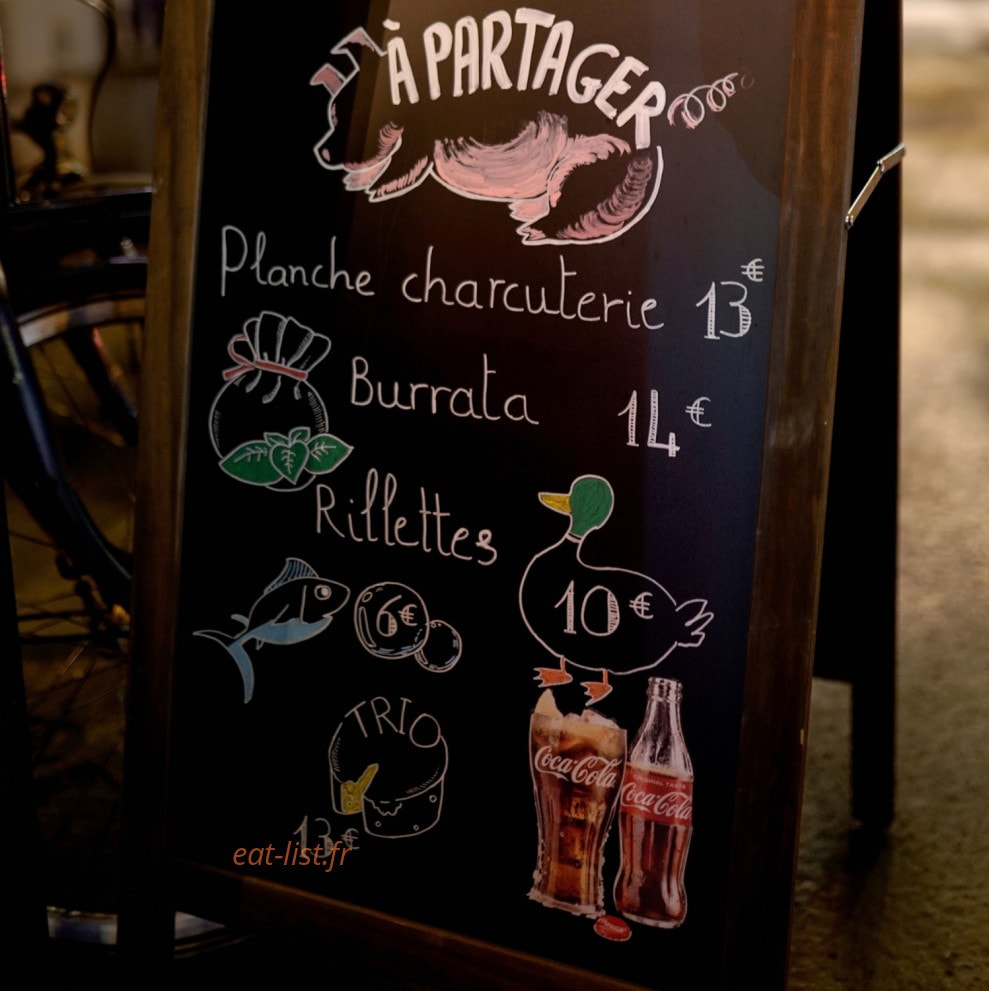 À PARTAGER
Planche charcuterie 13€
Burrata 14€
Rillettes
6€ 10€
TRIO
13€
Coca-Cola
ORIGINAL TASTE
Coca-Cola
eat-list.fr